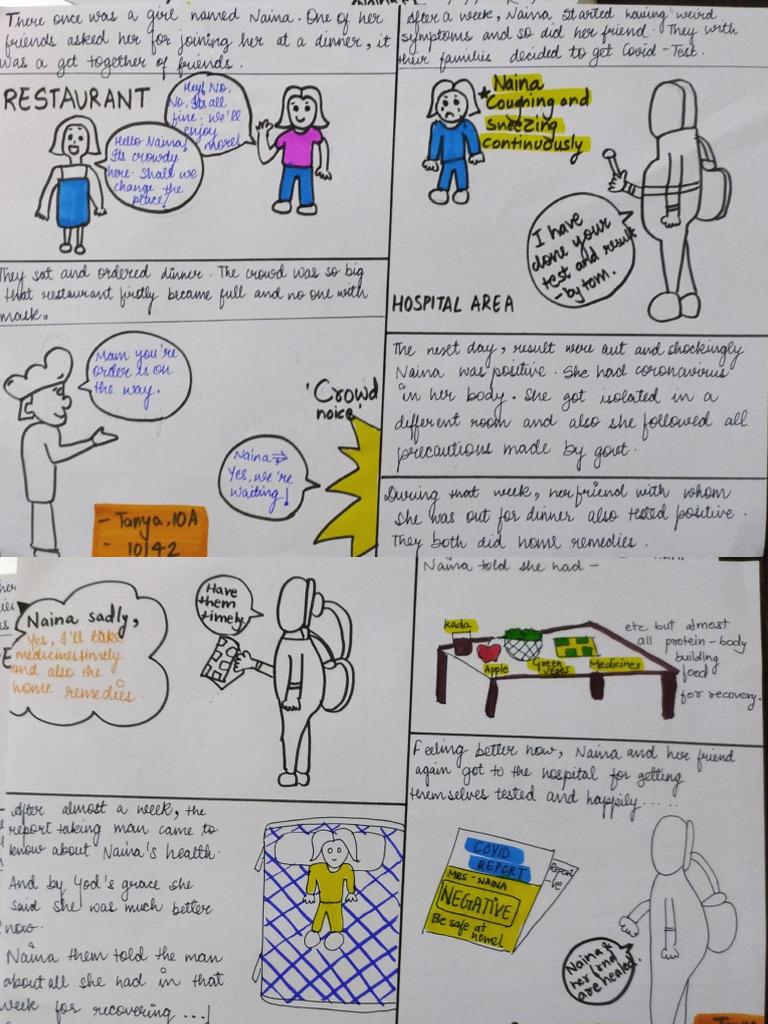 There once was a girl named Naina. One of her
friends asked her for joining her at a dinner, it
was a get together of friends.
RESTAURANT
Hey! No,
No, Its all
fine. we'll
enjoy
more!
Hello Naina!
Its crowdy
here. Shall we
change the
place?
They sat and ordered dinner. The crowd was so big
that restaurant firstly became full and no one with
mask.
Mam you're
order is on
the way.
'Crowd
noice'
Naina⇒
Yes, we're
waiting!
- Tanya, 10A
- 10142
After a week, Naina started having weird
symptoms and so did her friend. They with
their families decided to get Covid-Test.
* Naina
Coughing and
sneezing
continuously
I have
done your
test and result
-by tom.
HOSPITAL AREA
The next day, result were out and shockingly
Naina was positive. She had coronavirus
in her body. She got isolated in a
different room and also she followed all
precautions made by govt.
During that week, her friend with whom
she was out for dinner also tested positive.
They both did home remedies.
Naina sadly,
Yes, I'll take
medicines timely
and also the
home remedies.
Have
them
timely.
After almost a week, the
report taking man came to
know about Naina's health.
And by God's grace she
said she was much better
now.
Naina them told the man
about all she had in that
week for recovering ...!
Naina told she had -
Kada
Apple
Green
veges
Medicines
etc but almost
all protein-body
building
food
for recovery.
Feeling better now, Naina and her friend
again got to the hospital for getting
themselves tested and happily.....
COVID
REPORT
MRS - NAINA
NEGATIVE
Be safe at
home!
Report
-ve
Naina &
her frnd
are healed.